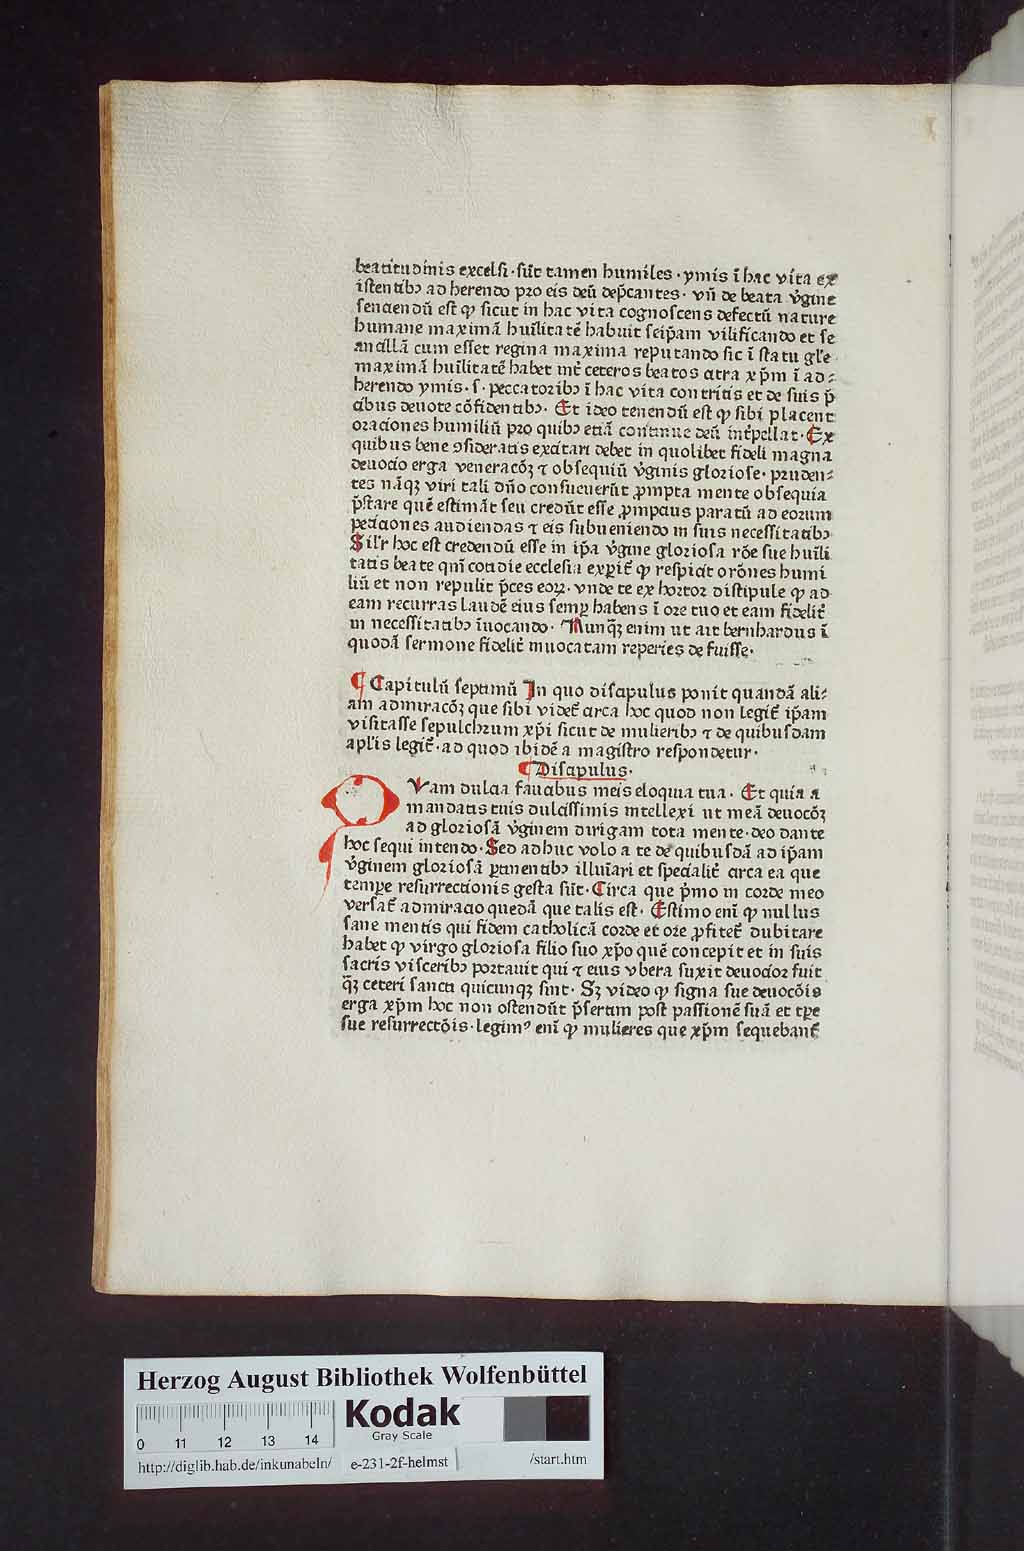 beatitudinis excelsi· sūt tamen humiles · ymis ī hac vita ex
istentibꝰ ad herendo pro eis deū dep̄cantes· vn̄ de beata v̄gine
senciendū est ꝙ sicut in hac vita cognoscens defectū nature
humane maximā huīlitatē habuit seip̄am vilificando et se
ancillā cum esset regina maxima reputando sic ī statu gl̄e
maximā huīlitatē habet int̄ ceteros beatos circa xp̄m ī ad⸗
herendo ymis· s· peccatoribꝰ ī hac vita contritis et de suis p̄
cibus deuote cōfidentibꝰ· Et ideo tenendū est ꝙ sibi placent
oraciones humiliū pro quibꝰ etiā continue deū int̄pellat· Ex
quibus bene ꝯsideratis excitari debet in quolibet fideli magna
deuocio erga veneracōꝫ ⁊ obsequiū v̄ginis gloriose· pruden⸗
tes nāqꝫ viri tali dn̄o consueuerūt ꝓmpta mente obsequia
p̄stare quē estimāt seu credūt esse ꝓmpcius paratū ad eorum
peticiones audiendas ⁊ eis subueniendo in suis necessitatibꝰ
Sil'r hoc est credendū esse in ip̄a v̄gine gloriosa rōe sue huīli
tatis beate qm̄ cottidie ecclesia experit̄ ꝙ respicit orōnes humi
liū et non repulit p̄ces eoꝝ· vnde te ex hortor distipule ꝙ ad
eam recurras laudē eius semp̄ habens ī ore tuo et eam fidelit̄
in necessitatibꝰ īuocando· Nunqꝫ enim ut ait bernhardus ī
quodā sermone fidelit̄ inuocatam reperies de fuisse·
¶ Capitulū septimū In quo discipulus ponit quandā ali⸗
am admiracōꝫ que sibi videt̄ circa hoc quod non legit̄ ip̄am
visitasse sepulchrum xp̄i sicut de mulieribꝰ ⁊ de quibusdam
apl'is legit̄· ad quod ibidē a magistro respondetur·
¶ Discipulus·
QVam dulcia faucibus meis eloquia tua· Et quia a
mandatis tuis dulcissimis intellexi ut meā deuocōꝫ
ad gloriosā v̄ginem dirigam tota mente· deo dante
hoc sequi intendo· Sed adhuc volo a te de quibusdā ad ip̄am
v̄ginem gloriosā ꝑtinentibꝰ illuīari et specialit̄ circa ea que
tempe resurrectionis gesta sūt· Circa que p̄mo in corde meo
versat̄ admiracio quedā que talis est· Estimo enī ꝙ nullus
sane mentis qui fidem catholicā corde et ore ꝓfitet̄ dubitare
habet ꝙ virgo gloriosa filio suo xp̄o quē concepit et in suis
sacris visceribꝰ portauit qui ⁊ eius vbera suxit deuocior fuit
qꝫ ceteri sancti quicunqꝫ sint· Sꝫ video ꝙ signa sue deuocōis
erga xp̄m hoc non ostendūt p̄sertim post passionē suā et tp̄e
sue resurrectōis· legimꝰ enī ꝙ mulieres que xp̄m sequebant̄
Herzog August Bibliothek Wolfenbüttel
Kodak
Gray Scale
0 11 12 13 14
http://diglib.hab.de/inkunabeln/ e-231-2f-helmst /start.htm